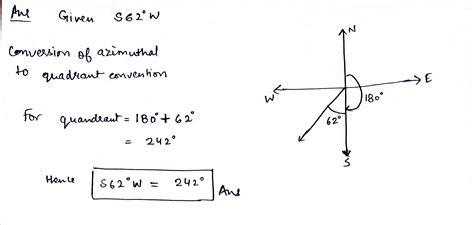 Ans Given S62°W
Conversion of azimuthal
to quadrant convention
For quandrant = 180° + 62°
= 242°
Hence S62°W = 242° Ans
N
E
W
180°
62°
S